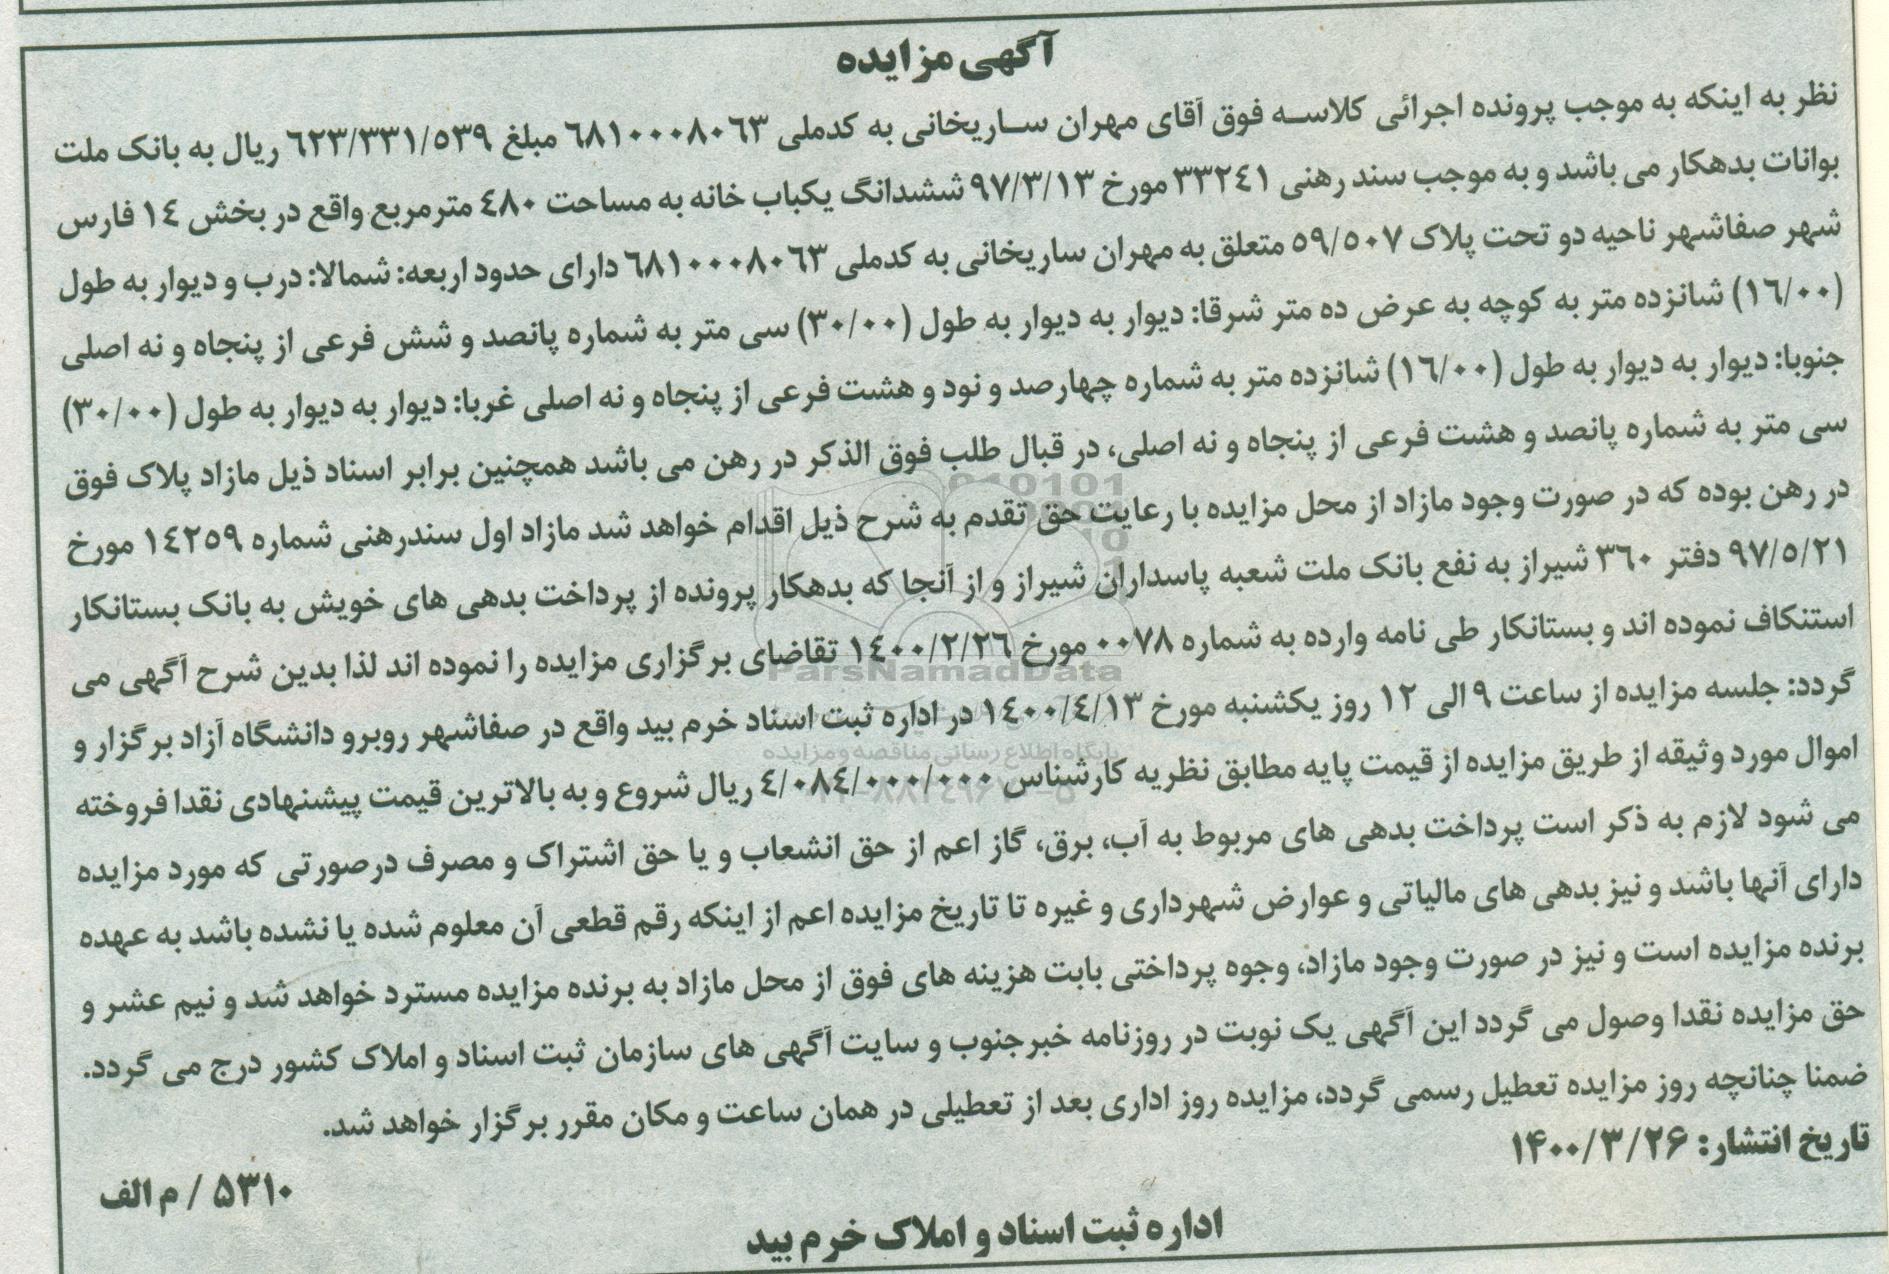 آگهی مزایده
نظر به اینکه به موجب پرونده اجرائی کلاسه فوق آقای مهران ساریخانی به کدملی ٦٨١٠٠٠٨٠٦٣ مبلغ ٦٢٣/٣٣١/٥٣٩ ریال به بانک ملت
بوانات بدهکار می باشد و به موجب سند رهنی ٣٣٢٤١ مورخ ٩٧/٣/١٣ ششدانگ یکباب خانه به مساحت ٤٨٠ مترمربع واقع در بخش ١٤ فارس
شهر صفاشهر ناحیه دو تحت پلاک ٥٩/٥٠٧ متعلق به مهران ساریخانی به کدملی ٦٨١٠٠٠٨٠٦٣ دارای حدود اربعه: شمالا: درب و دیوار به طول
(١٦/٠٠) شانزده متر به کوچه به عرض ده متر شرقا: دیوار به دیوار به طول (٣٠/٠٠) سی متر به شماره پانصد و شش فرعی از پنجاه و نه اصلی
جنوبا: دیوار به دیوار به طول (١٦/٠٠) شانزده متر به شماره چهارصد و نود و هشت فرعی از پنجاه و نه اصلی غربا: دیوار به دیوار به طول (٣٠/٠٠)
سی متر به شماره پانصد و هشت فرعی از پنجاه و نه اصلی، در قبال طلب فوق الذکر در رهن می باشد همچنین برابر اسناد ذیل مازاد پلاک فوق
در رهن بوده که در صورت وجود مازاد از محل مزایده با رعایت حق تقدم به شرح ذیل اقدام خواهد شد مازاد اول سندرهنی شماره ١٤٢٥٩ مورخ
٩٧/٥/٢١ دفتر ٣٦٠ شیراز به نفع بانک ملت شعبه پاسداران شیراز و از آنجا که بدهکار پرونده از پرداخت بدهی های خویش به بانک بستانکار
استنکاف نموده اند و بستانکار طی نامه وارده به شماره ٠٠٧٨ مورخ ١٤٠٠/٢/٢٦ تقاضای برگزاری مزایده را نموده اند لذا بدین شرح آگهی می
گردد: جلسه مزایده از ساعت ٩ الی ١٢ روز یکشنبه مورخ ١٤٠٠/٤/١٣ در اداره ثبت اسناد خرم بید واقع در صفاشهر روبرو دانشگاه آزاد برگزار و
اموال مورد وثیقه از طریق مزایده از قیمت پایه مطابق نظریه کارشناس ٤/٠٨٤/٠٠٠/٠٠٠ ریال شروع و به بالاترین قیمت پیشنهادی نقدا فروخته
می شود لازم به ذکر است پرداخت بدهی های مربوط به آب، برق، گاز اعم از حق انشعاب و یا حق اشتراک و مصرف درصورتی که مورد مزایده
دارای آنها باشد و نیز بدهی های مالیاتی و عوارض شهرداری و غیره تا تاریخ مزایده اعم از اینکه رقم قطعی آن معلوم شده یا نشده باشد به عهده
برنده مزایده است و نیز در صورت وجود مازاد، وجوه پرداختی بابت هزینه های فوق از محل مازاد به برنده مزایده مسترد خواهد شد و نیم عشر و
حق مزایده نقدا وصول می گردد این آگهی یک نوبت در روزنامه خبرجنوب و سایت آگهی های سازمان ثبت اسناد و املاک کشور درج می گردد.
ضمنا چنانچه روز مزایده تعطیل رسمی گردد، مزایده روز اداری بعد از تعطیلی در همان ساعت و مکان مقرر برگزار خواهد شد.
تاریخ انتشار: ۱۴۰۰/۳/۲۶
۵۳۱۰ / م الف
اداره ثبت اسناد و املاک خرم بید
ParsNamadData
پایگاه اطلاع رسانی مناقصه و مزایده